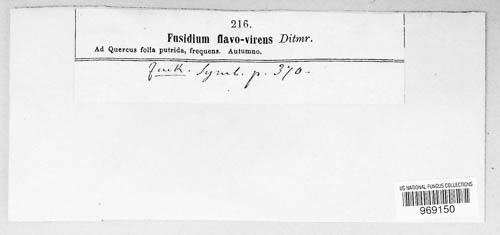 216.
Fusidium flavo-virens Ditmr.
Ad Quercus folia putrida, frequens. Autumno.
Fuck. Symb. p. 370.
US NATIONAL FUNGUS COLLECTIONS
969150